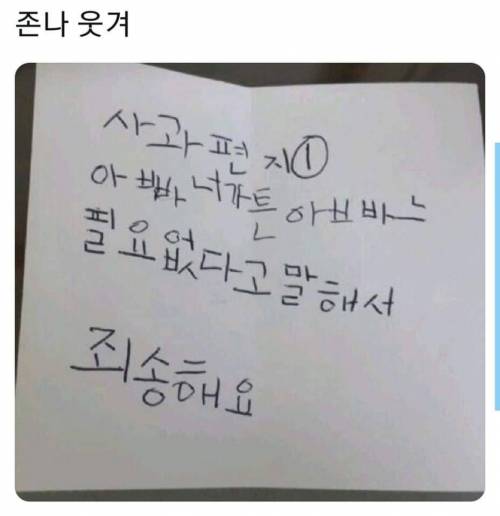 존나 웃겨
사과편지①
아빠 너가튼 아빤
필요없다고말해서
죄송해요